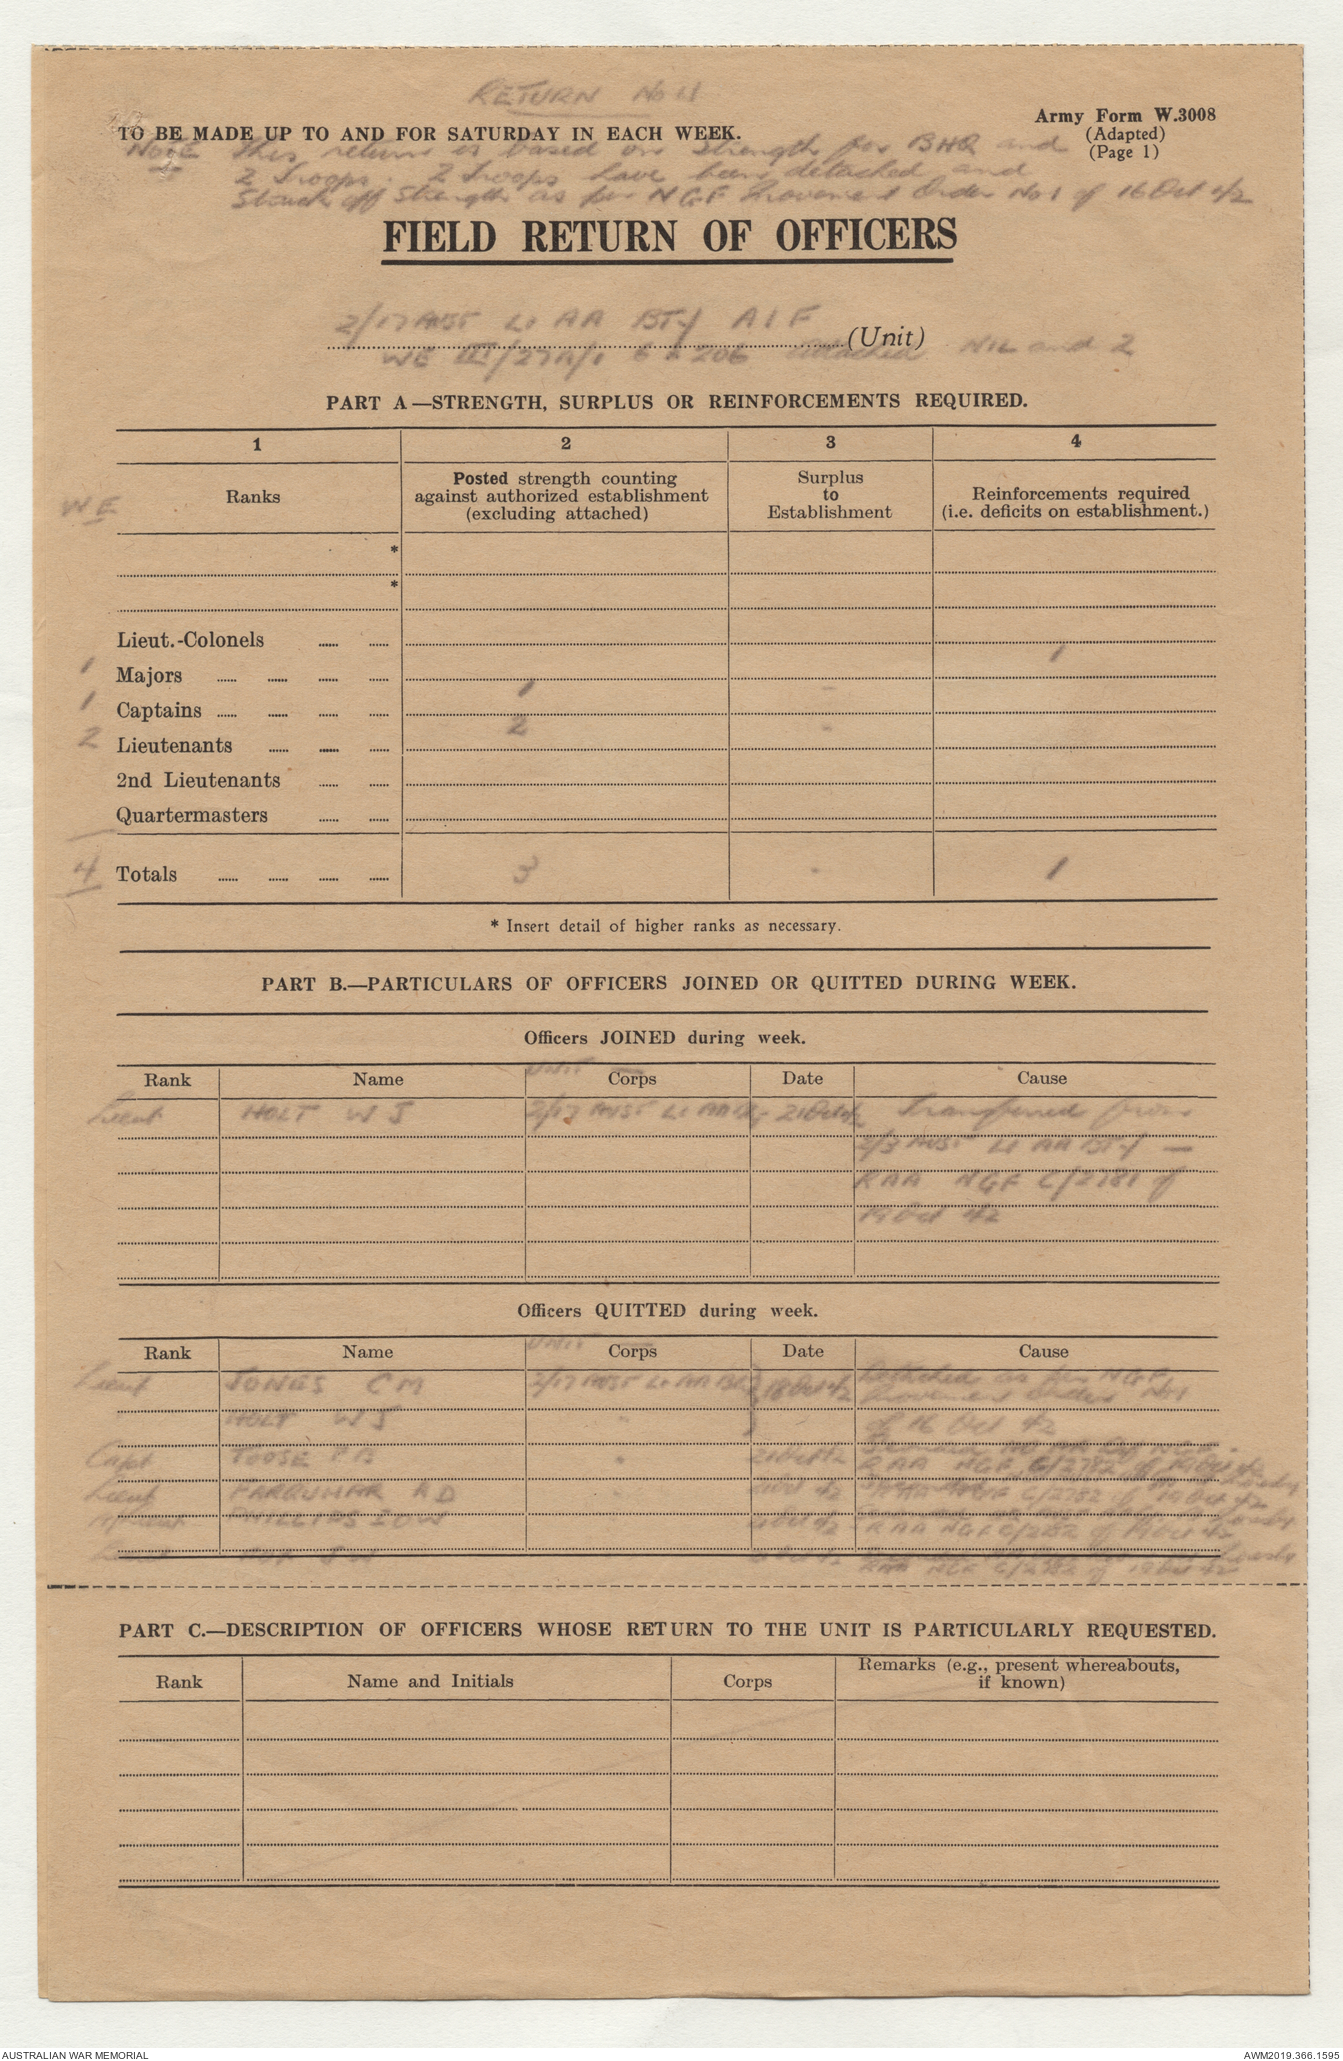 RETURN No 11
Army Form W.3008
(Adapted)
(Page 1)
TO BE MADE UP TO AND FOR SATURDAY IN EACH WEEK.
NOTE This return is based on strength for BHQ and
2 Troops. 2 Troops have been detached and
Struck off Strength as per NGF Movement Order No 1 of 16 Oct 42
FIELD RETURN OF OFFICERS
2/17 AUST Lt AA BTY AIF
(Unit)
WE III/27A/1 206 attached NIL and 2
PART A—STRENGTH, SURPLUS OR REINFORCEMENTS REQUIRED.
1 2 3 4
WE Ranks Posted strength counting against authorized establishment (excluding attached) Surplus to Establishment Reinforcements required (i.e. deficits on establishment.)
*
*
Lieut.-Colonels
1 Majors 1
1 Captains 1 -
2 Lieutenants 2 -
2nd Lieutenants
Quartermasters
4 Totals 3 - 1
* Insert detail of higher ranks as necessary.
PART B.—PARTICULARS OF OFFICERS JOINED OR QUITTED DURING WEEK.
Officers JOINED during week.
UNIT
Rank Name Corps Date Cause
Lieut HOLT W J 2/17 AUST Lt AA Bty 21 Oct 42 Transferred from
2/3 AUST Lt AA BTY —
RAA NGF G/2781 of
19 Oct 42
Officers QUITTED during week.
UNIT
Rank Name Corps Date Cause
Lieut JONES C M 2/17 AUST Lt AA Bty 18 Oct 42 Detached as per NGF
Movement Order No 1
HOLT W J " of 16 Oct 42
Capt TOOSE P B " 21 Oct 42
RAA NGF G/2782 of 19 Oct 42
Lieut FARQUHAR R D " 21 Oct 42
NGF G/2782 of 19 Oct 42
PHILLIPS I O W " 21 Oct 42
RAA NGF G/2782 of 19 Oct 42
Lieut
RAA NGF G/2782 of 19 Oct 42
PART C.—DESCRIPTION OF OFFICERS WHOSE RETURN TO THE UNIT IS PARTICULARLY REQUESTED.
Rank Name and Initials Corps Remarks (e.g., present whereabouts, if known)
AUSTRALIAN WAR MEMORIAL
AWM2019.366.1595